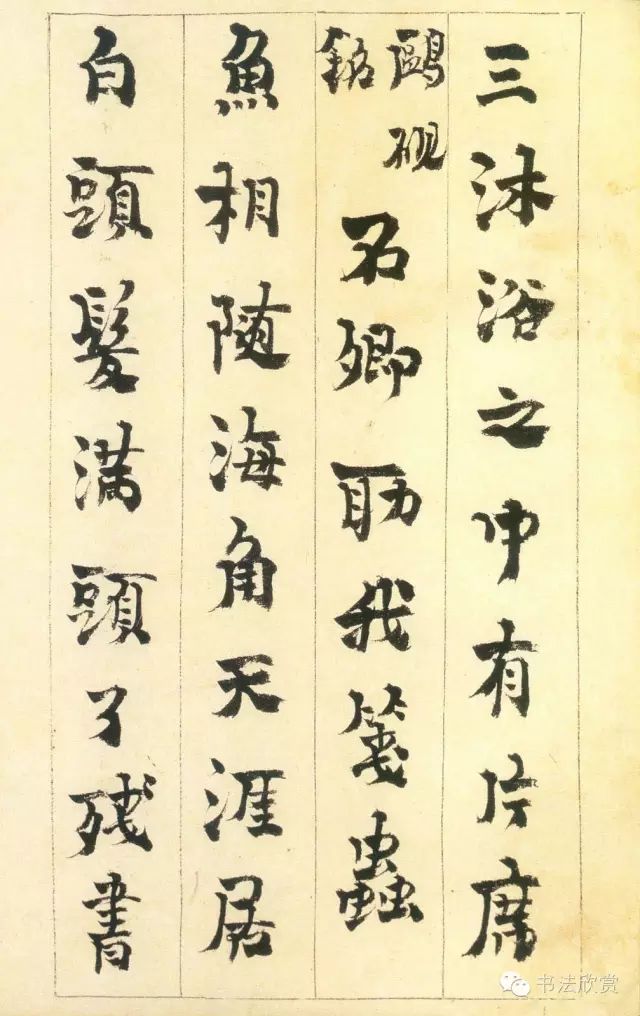 三沐浴之中有片席
鷗砚銘
石卿助我箋蟲
魚相随海角天涯居
白頭髮滿頭了残書
书法欣赏